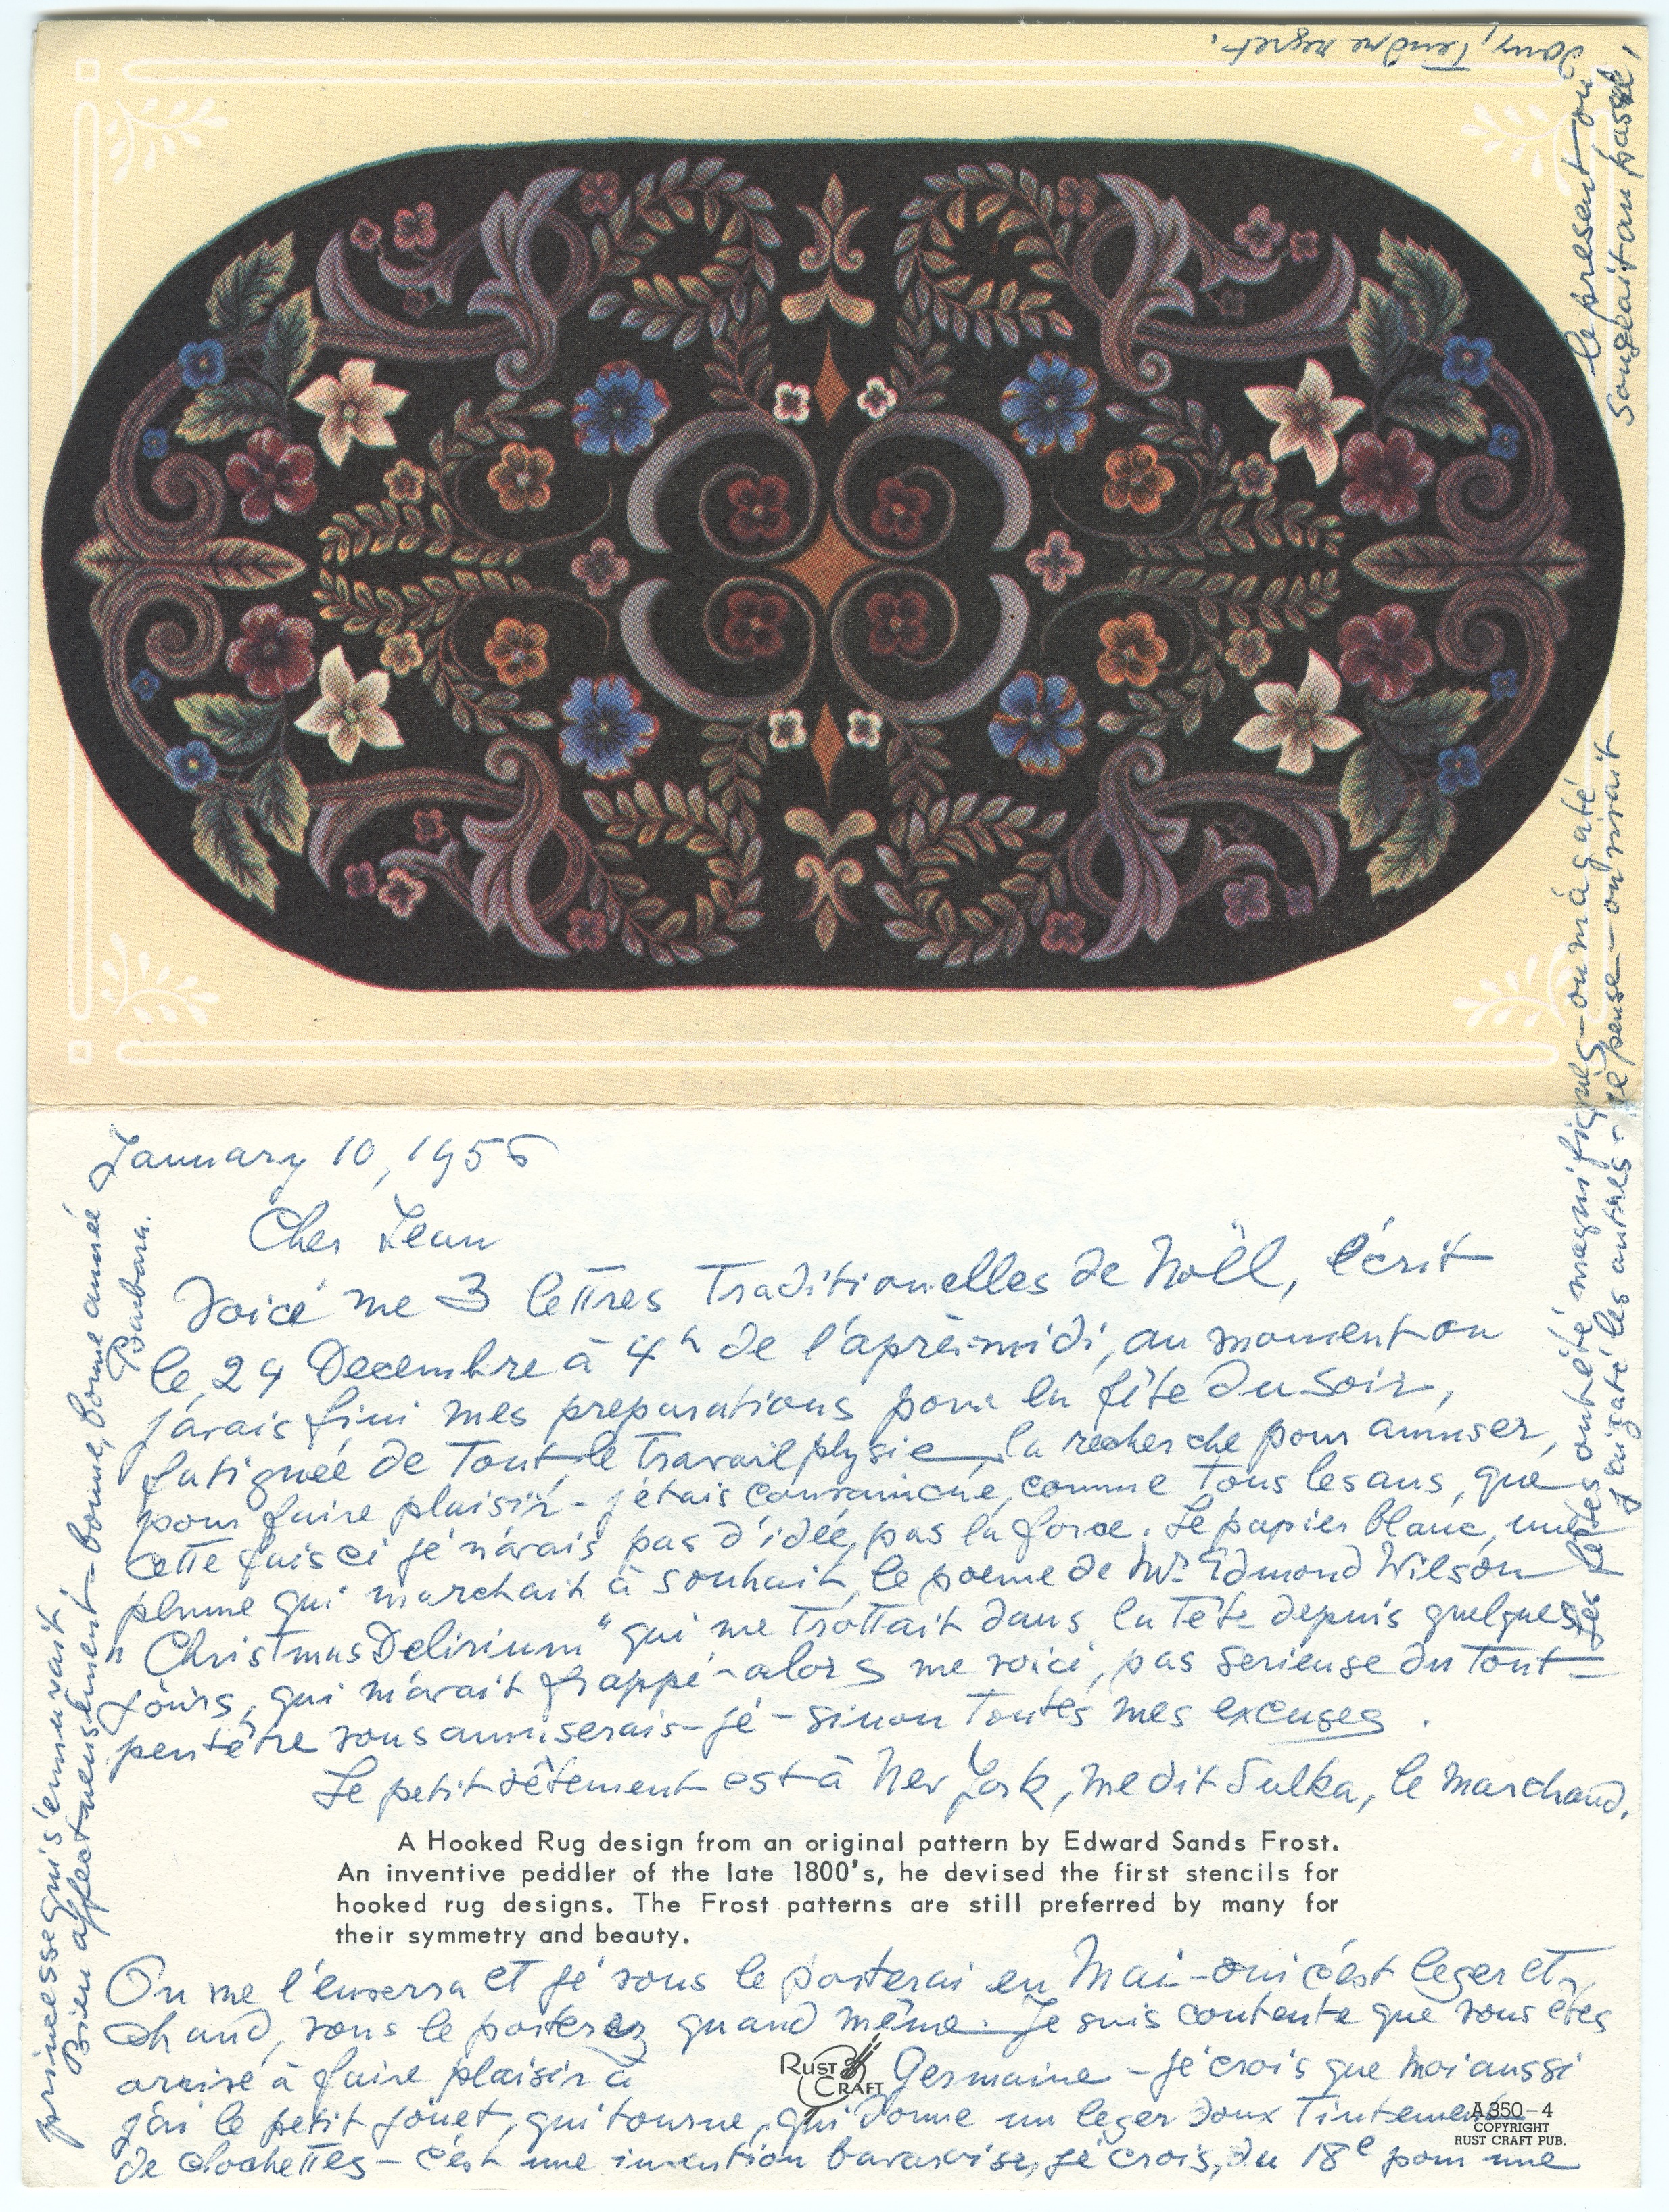 January 10, 1956
Cher Jean
Voici me 3 lettres Traditionelles de Noël, écrit
le 24 Decembre à 4h de l'après-midi, au moment ou
j'avais fini mes preparations pour la fête du soir,
fatiguée de tout le travail physic, la recherche pour amuser,
pour faire plaisir - j'étais convaincue, comme tous les ans, que
cette fois ci je n'avais pas d'idée, pas la force. Le papier blanc, une
plume qui marchait à souhait, le poeme de Mr Edmond Wilson
"Christmas Delirium" qui me trottait dans la tête depuis quelques
jours, qui m'avait frappé - alors me voici, pas serieuse du tout -
peutêtre vous amuserais-je - sinon toutes mes excuses.
Le petit vêtement est à New York, me dit Sulka, le marchand.
A Hooked Rug design from an original pattern by Edward Sands Frost.
An inventive peddler of the late 1800's, he devised the first stencils for
hooked rug designs. The Frost patterns are still preferred by many for
their symmetry and beauty.
On me l'enverra et je vous le porterai en Mai - oui c'est leger et
chaud, vous le porterez quand même. Je suis contente que vous êtes
arrivé à faire plaisir à Germaine - je crois que moi aussi
RUST CRAFT
j'ai le petit jouet, qui tourne, qui donne un leger doux tintement
A350-4
COPYRIGHT
RUST CRAFT PUB.
de clochettes - c'est une invention bavaroise, je crois, du 18e pour une
princesse qui s'ennuyait
Bien affectueusement - bonne, bonne année
Barbara.
Les fêtes ont été magnifiques - on m'a gaté
j'ai gaté les autres - je pense - on vivait
le present ou
songeait au passé,
sans, tendre regret.